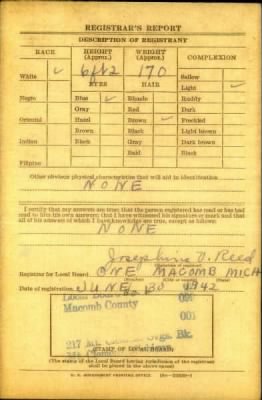 REGISTRAR'S REPORT
DESCRIPTION OF REGISTRANT
RACE HEIGHT (Approx.) WEIGHT (Approx.) COMPLEXION
White ✓ 6ft2 170 Sallow
EYES HAIR Light ✓
Negro Blue ✓ Blonde Ruddy
Gray Red Dark
Oriental Hazel Brown ✓ Freckled
Brown Black Light brown
Indian Black Gray Dark brown
Bald Black
Filipino
Other obvious physical characteristics that will aid in identification
NONE
I certify that my answers are true; that the person registered has read or has had
read to him his own answers; that I have witnessed his signature or mark and that
all of his answers of which I have knowledge are true, except as follows:
NONE
Josephine V. Reed
Registrar for Local Board ONE MACOMB MICH
Date of registration JUNE 30 1942
Macomb County
001
217
Bk.
(STAMP OF LOCAL BOARD)
(The stamp of the Local Board having jurisdiction of the registrant
shall be placed in the above space)
U. S. GOVERNMENT PRINTING OFFICE